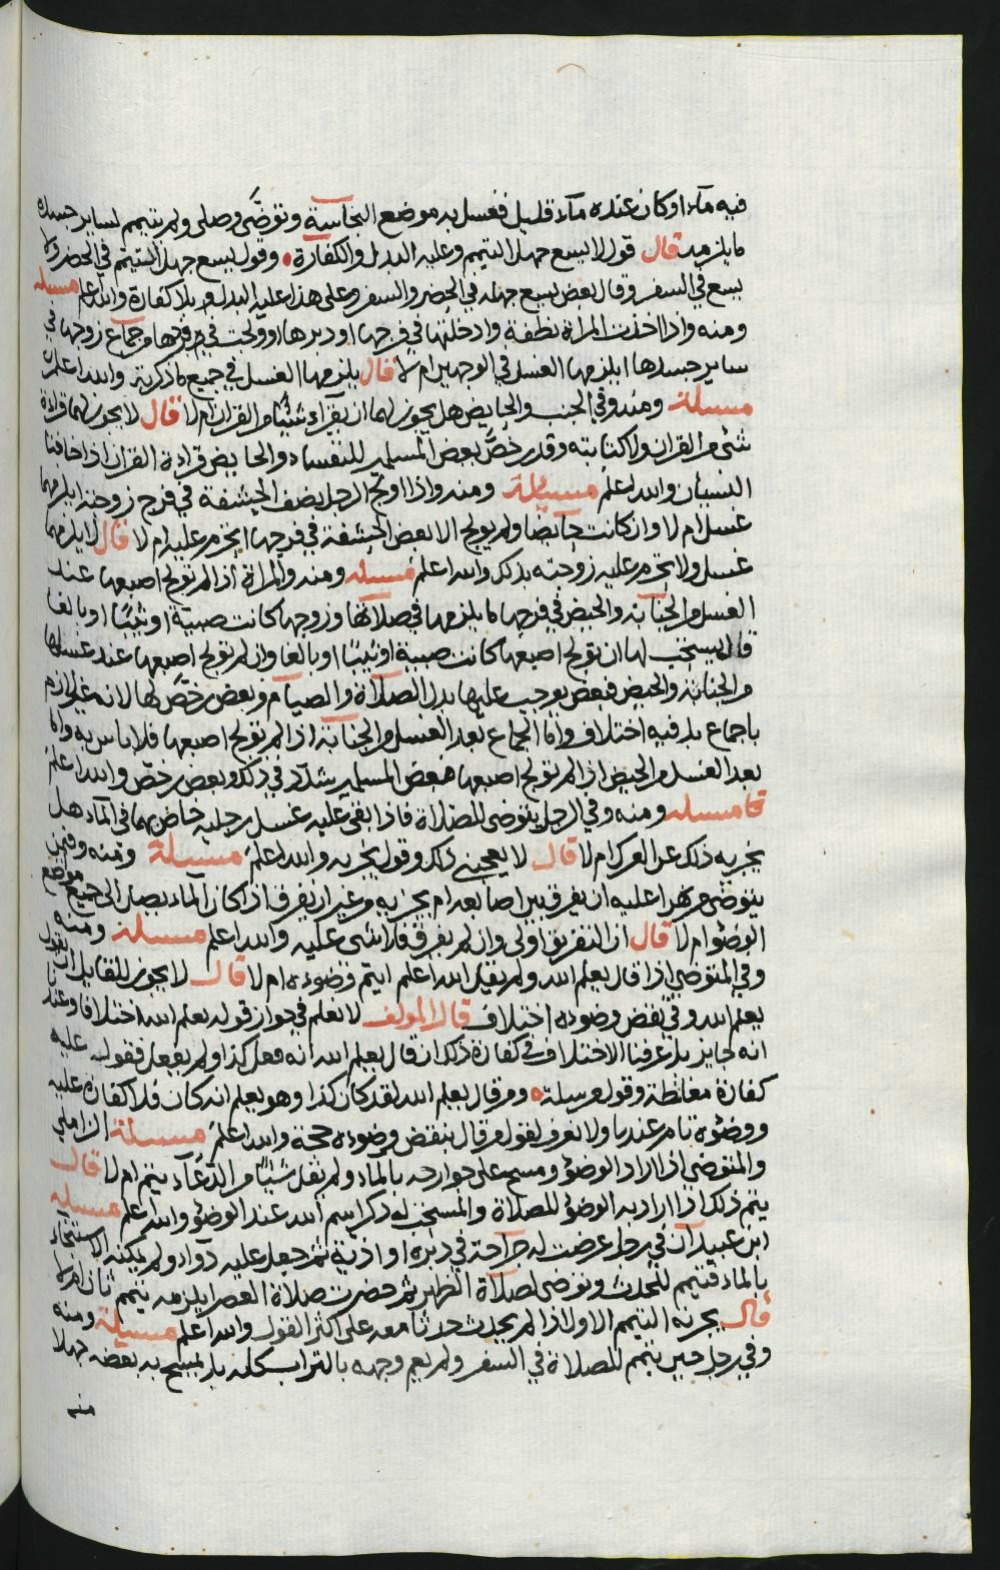 فيه ماء او كان عنده ماء قليل فغسل به موضع النجاسة وتوضى وصلى ولم يتيمم لساير جسده
ما يلزمه قال قول لا يسع جهل التيمم وعليه البدل والكفارة وقول يسع جهل التيمم في الحضر ولا
يسع في السفر وقال بعض يسع جهله في الحضر والسفر وعلى هذا عليه البدل بلا كفارة والله اعلم مسئله
ومنه واذا اخذت المراة نطفة وادخلتها في فرجها او دبرها او ولجت في فرجها من جماع زوجها في
ساير جسدها ايلزمها الغسل في الوجهين ام لا قال يلزمها الغسل في جميع ما ذكرته والله اعلم
مسئلة ومنه وفي الجنب والحايض هل يجوز لهما ان يقرآء شيئا من القران ام لا قال لا يجوز لهما قراءة
شئ من القران ولا كتابته وقد رخص بعض المسلمين للنفساء والحايض قراءة القران اذا خافتا
النسيان والله اعلم مسئلة ومنه واذا اولج الرجل نصف الحشفة في فرج زوجته ايلزمهما
غسل ام لا وان كانت حايضا ولم يولج الا بعض الحشفة في فرجها اتحرم عليه ام لا قال لا يلزمهما
غسل ولا تحرم عليه زوجته بذلك والله اعلم مسئله ومنه والمراة اذا لم تولج اصبعها عند
الغسل من الجنابة والحيض في فرجها ما يلزمها في صلاتها وزوجها كانت صبية او ثيبا او بالغا
قال يستحب لها ان تولج اصبعها كانت صبية او ثيبا او بالغا وان لم تولج اصبعها عند غسلها
من الجنابة والحيض فبعض يوجب عليها بدل الصلاة والصيام وبعض رخص لها لانه غير لازم
باجماع بل فيه اختلاف واما الجماع بعد الغسل من الجنابة اذا لم تولج اصبعها فلا باس به واما
بعد الغسل من الحيض اذا لم تولج اصبعها فبعض المسلمين شدد في ذلك وبعض رخص والله اعلم
مسئله ومنه وفي الرجل يتوضى للصلاة فاذا بقى عليه غسل رجليه خاض بهما في المآء هل
يجزيه ذلك عن العرك ام لا قال لا يعجبني ذلك وقول يجزيه والله اعلم مسئلة ومنه وفيمن
يتوضى من نهر اعليه ان يفرق بين اصابعه ام يجزيه من غير ان يفرق اذا كان المآء يصل الى جميع موضع
الوضوء ام لا قال ان التفريق اولى وان لم يفرق فلا شى عليه والله اعلم مسئلة ومنه
وفي المتوضى اذا قال يعلم الله ولم يقل الله اعلم ايتم وضوءه ام لا قال لا يجوز للقايل ان يقول
يعلم الله وفي نقض وضوءه اختلاف قال المولف لا نعلم في جواز قوله يعلم الله اختلافا وعندنا
انه جايز بل عرفنا الاختلاف في كفارة ذلك ان قال يعلم الله انه فعل كذا ولم يفعل فقول عليه
كفارة مغلظة وقول مرسلة ومن قال يعلم الله لقد كان كذا وهو يعلم انه كان فلا كفارة عليه
ووضوءه تام عندنا ولا نعرف لقول من قال بنقض وضوءه حجة والله اعلم مسئلة الزاملي
والمتوضى اذا اراد الوضوء ومسح على جوارحه بالماء ولم يقل شيئا من الدعآء يتم ام لا قال
يتم ذلك اذا اراد به الوضوء للصلاة والمستحب له ذكر اسم الله عند الوضوء والله اعلم مسئله
ابن عبيدان في رجل عرضت له جراحة في دبره او اذية ثم جعل عليه دوآء ولم يمكنه الاستنجاء
بالماء فتيمم للحدث وتوضى لصلاة الظهر ثم حضرت صلاة العصر ايلزمه تيمم ثان ام لا
قال يجزيه التيمم الاول اذا لم يحدث حدثا معه على اكثر القول والله اعلم مسئلة ومنه
وفي رجل حين يتمم للصلاة في السفر ولم يعم وجهه بالتراب كله بل يمسح به بعضه جهلا
منه